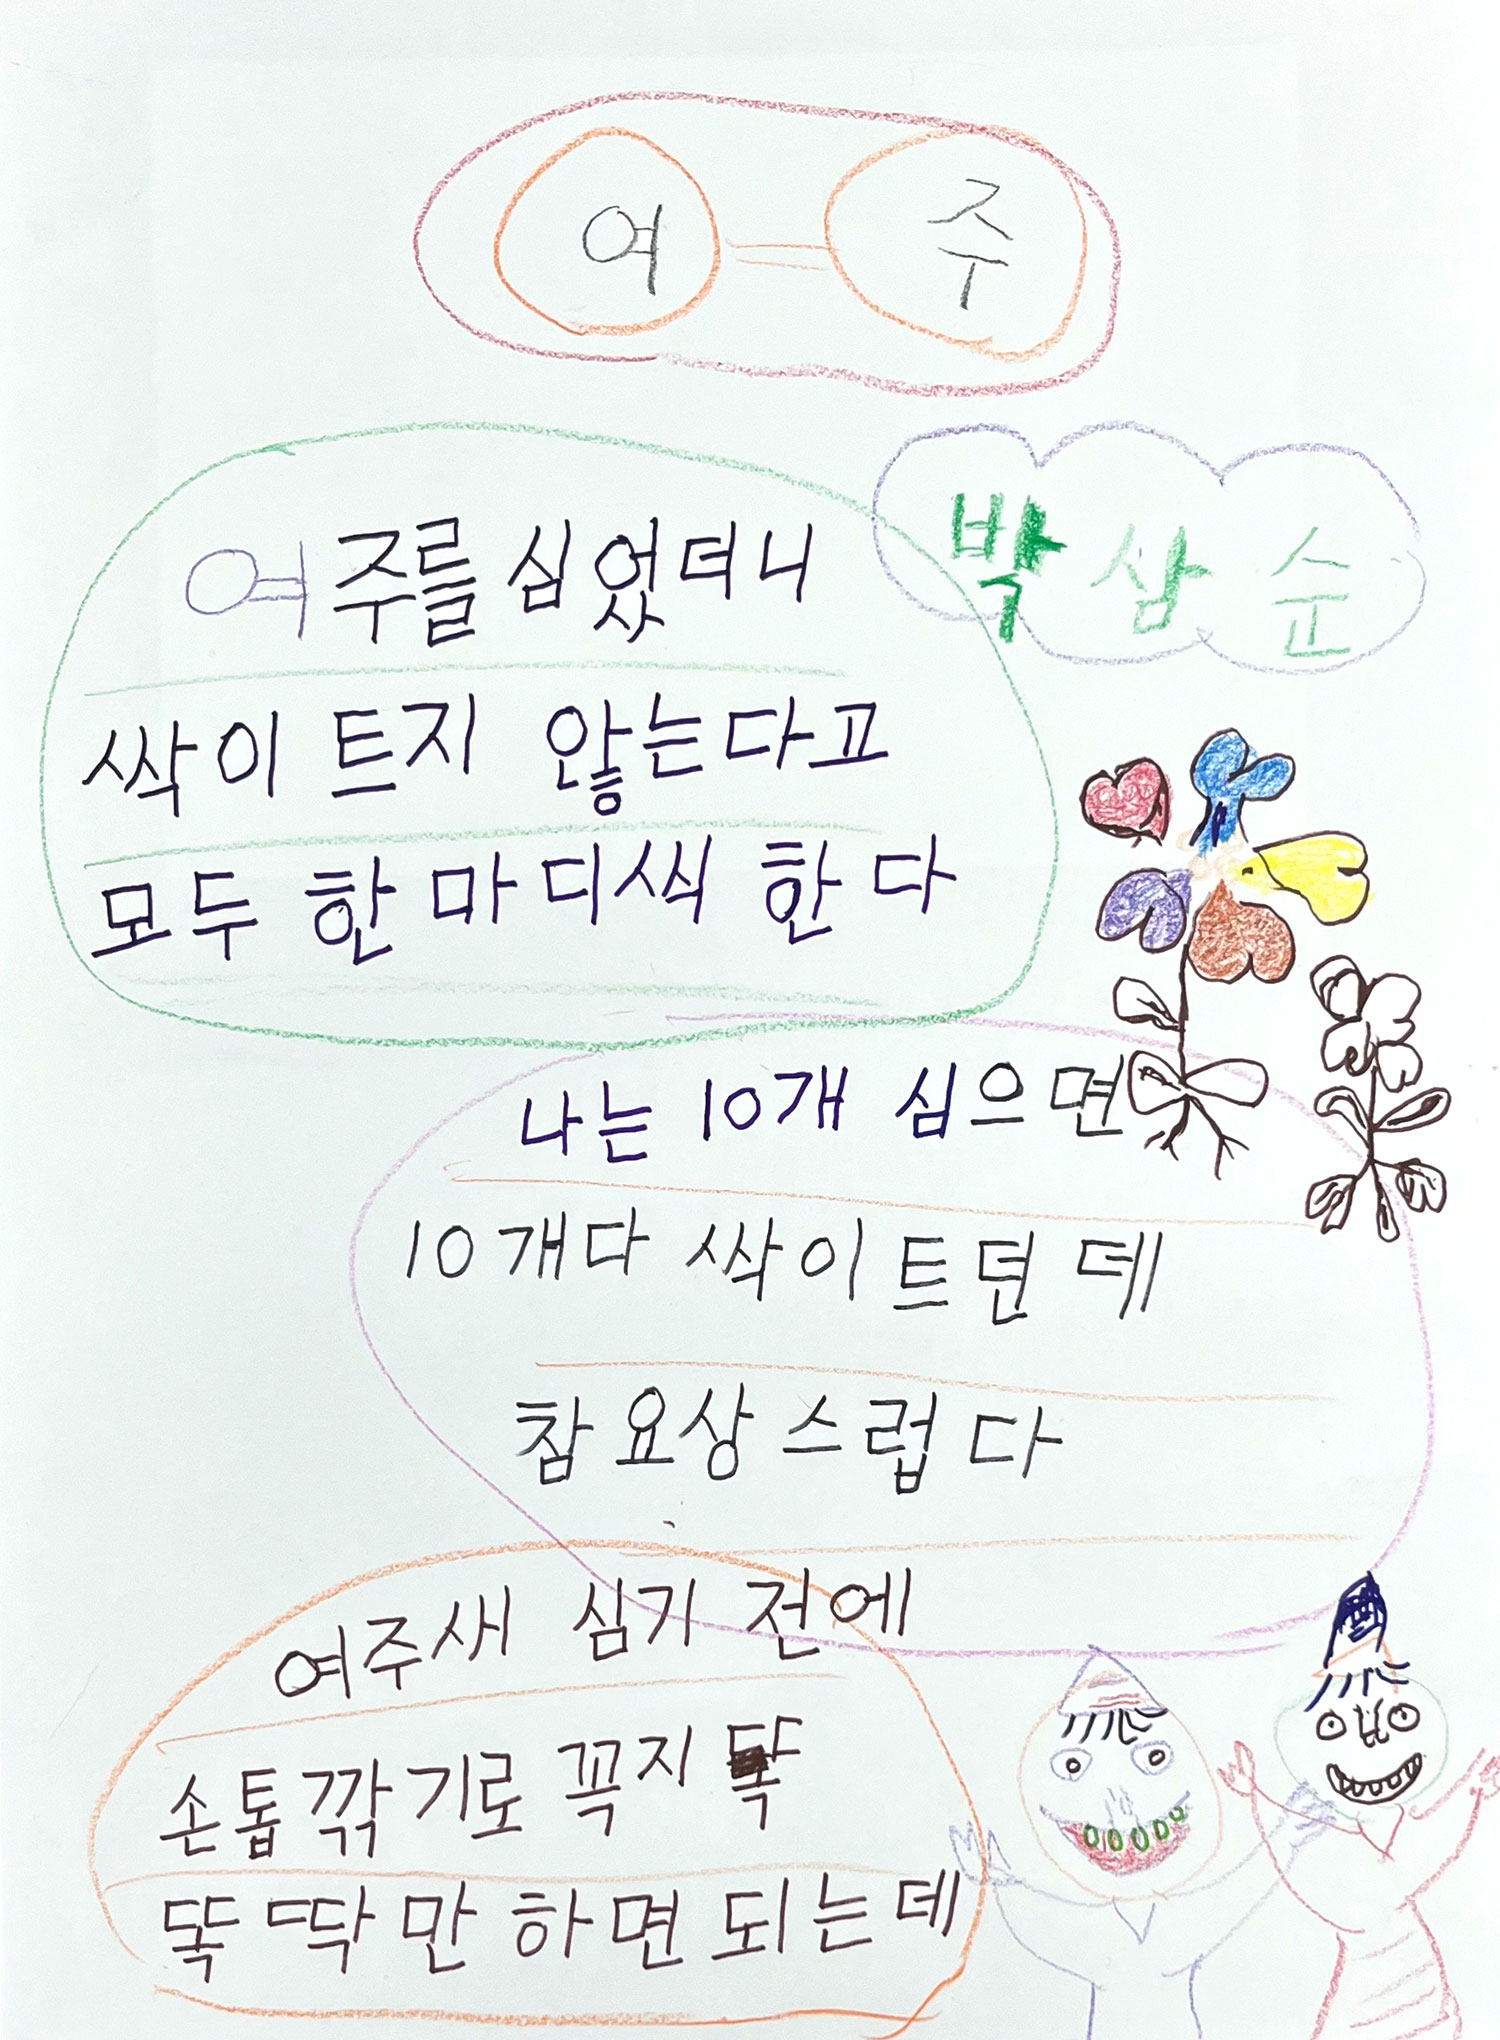 여 주
박삼순
여주를 심었더니
싹이 트지 않는다고
모두 한마디씩 한다
나는 10개 심으면
10개다 싹이 트던데
참 요상스럽다
여주새 심기 전에
손톱깎기로 꼭지 똑
똑딱만하면 되는데